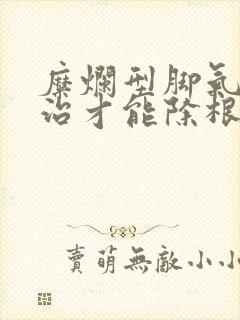 糜爛型脚氣
治才能除根
賣萌無敵小小